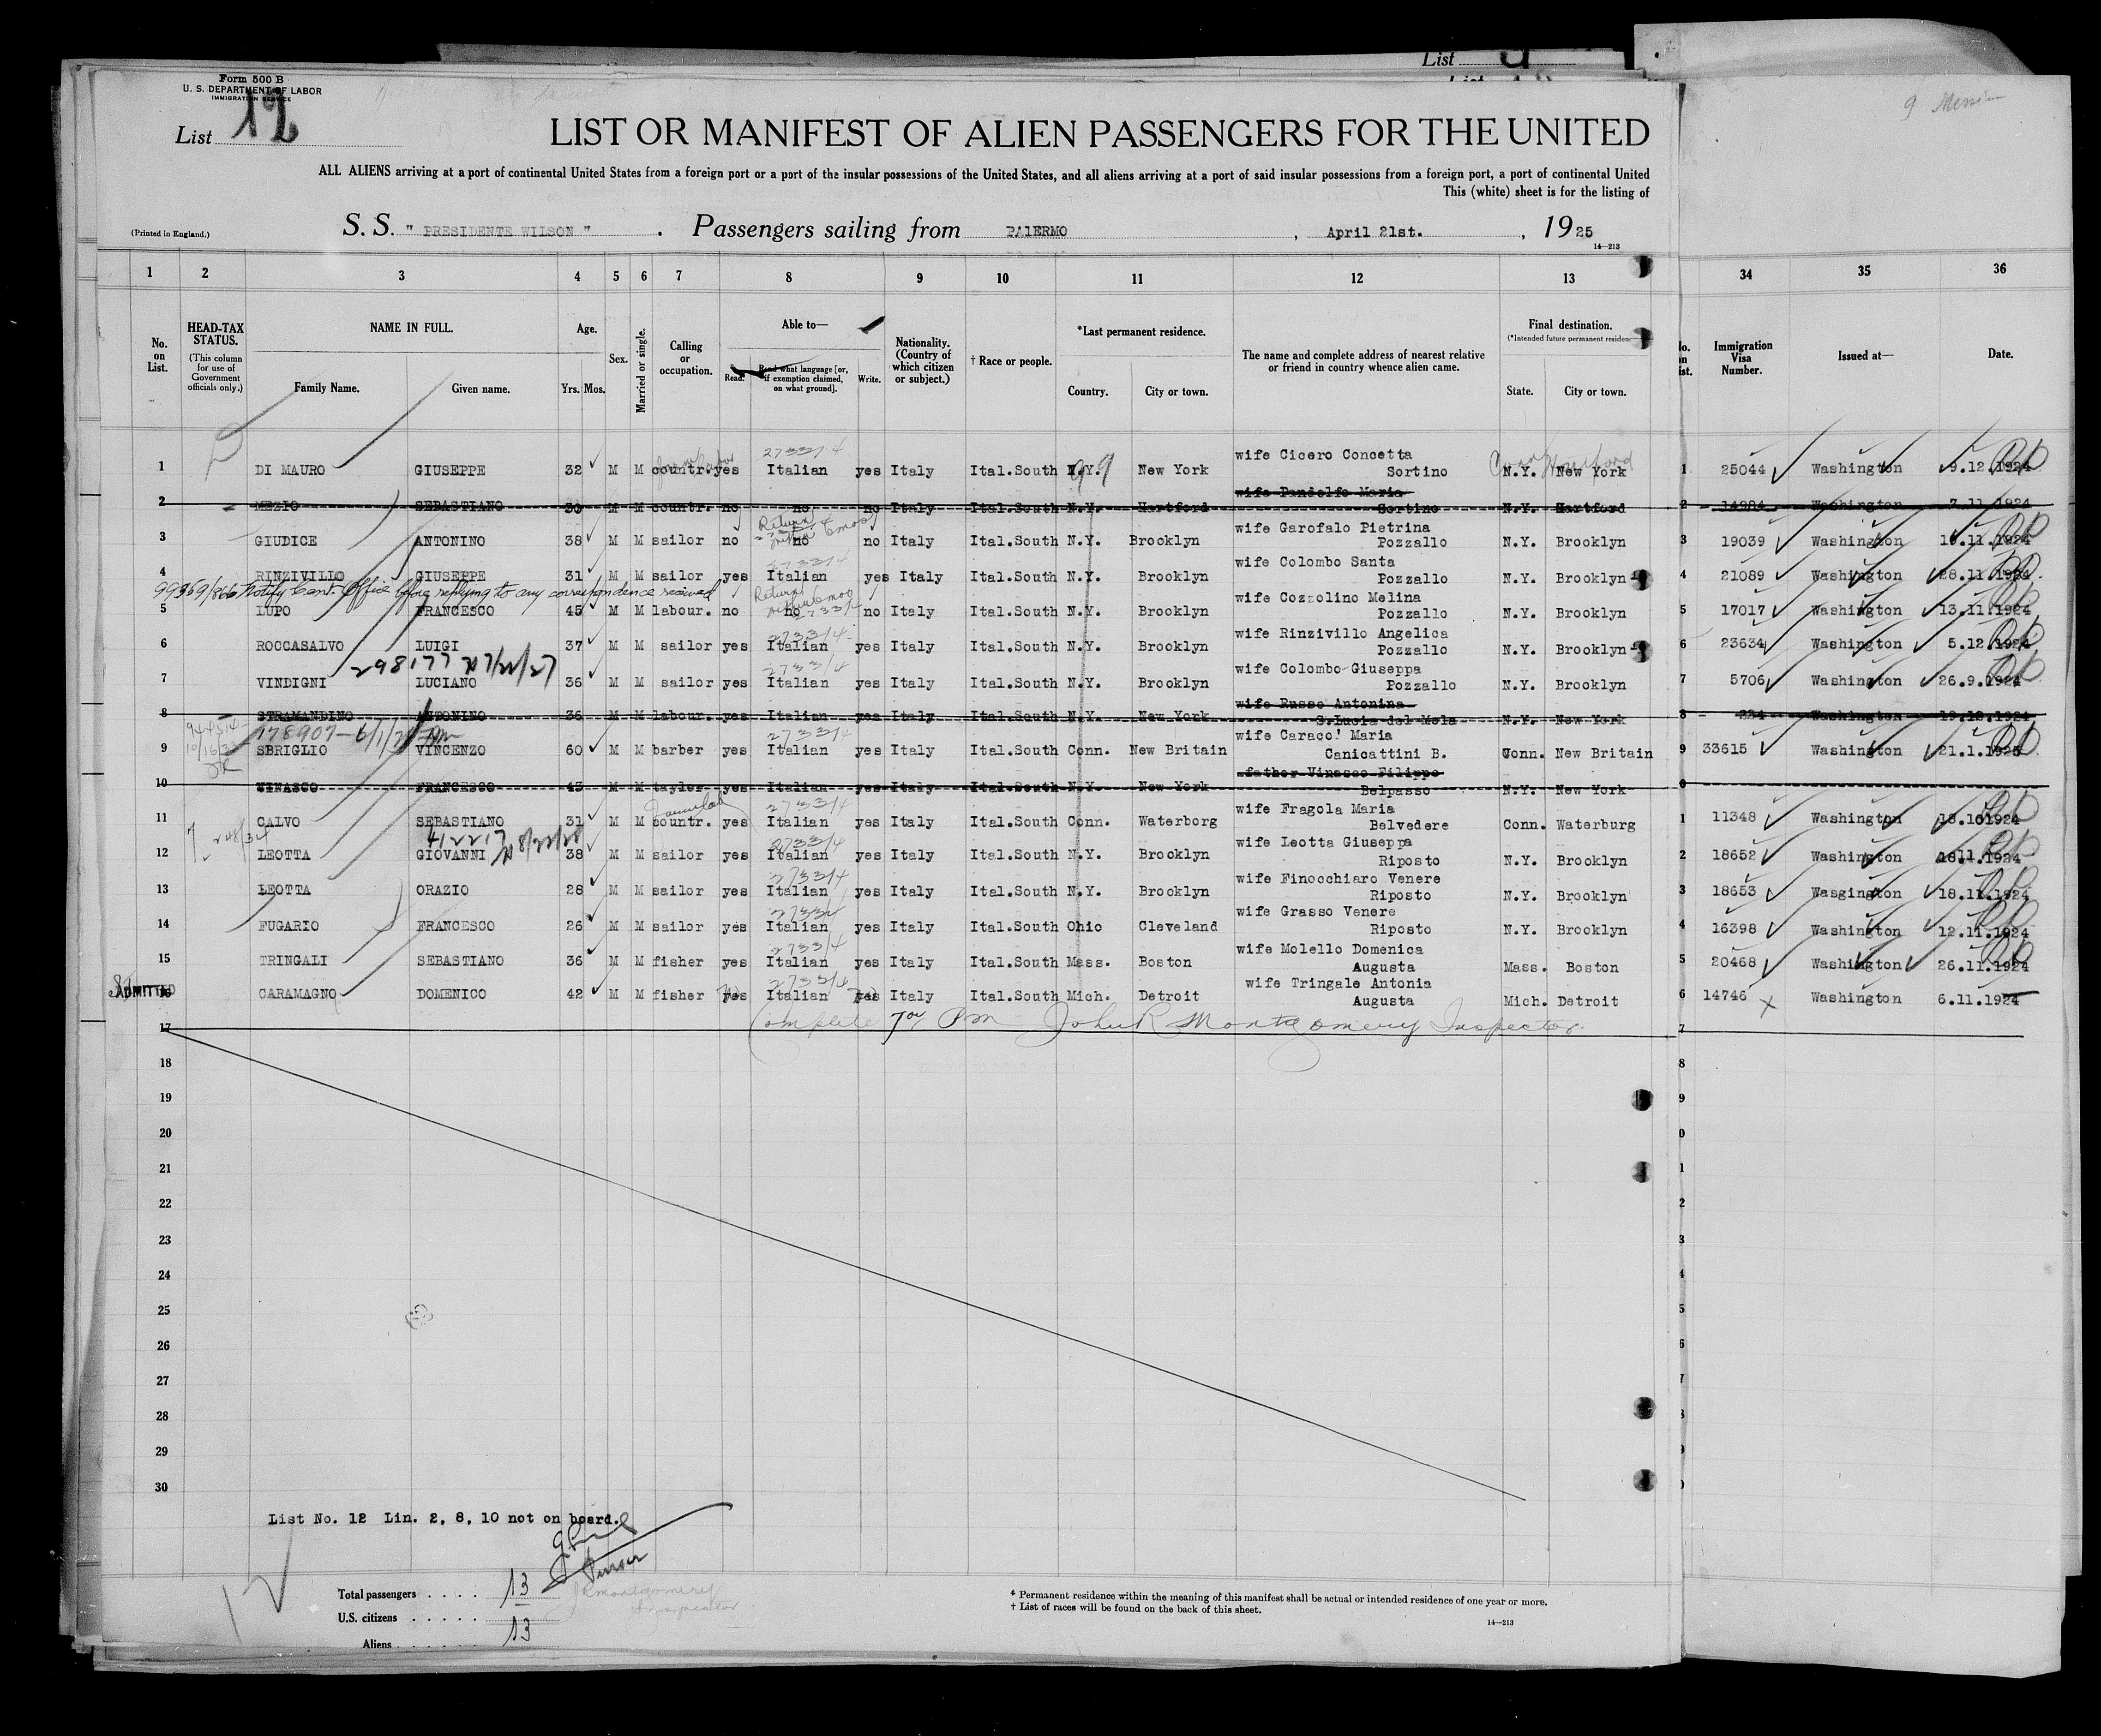 List
9 Messin
Form 500 B
U. S. DEPARTMENT OF LABOR
IMMIGRATION SERVICE
List 12
LIST OR MANIFEST OF ALIEN PASSENGERS FOR THE UNITED
ALL ALIENS arriving at a port of continental United States from a foreign port or a port of the insular possessions of the United States, and all aliens arriving at a port of said insular possessions from a foreign port, a port of continental United
This (white) sheet is for the listing of
(Printed in England.) S. S. " PRESIDENTE WILSON " . Passengers sailing from PALERMO , April 21st. , 19 25
14—213
1 2 3 4 5 6 7 8 9 10 11 12 13 34 35 36
No. on List.
HEAD-TAX STATUS.
(This column for use of Government officials only.)
NAME IN FULL.
Family Name. Given name.
Age.
Yrs. Mos.
Sex.
Married or single.
Calling or occupation.
Able to—
Read. Read what language [or, if exemption claimed, on what ground]. Write.
Nationality. (Country of which citizen or subject.)
† Race or people.
*Last permanent residence.
Country. City or town.
The name and complete address of nearest relative or friend in country whence alien came.
Final destination.
(*Intended future permanent residen
State. City or town.
Immigration Visa Number.
Issued at—
Date.
27331/4
wife Cicero Concetta
1 DI MAURO GIUSEPPE 32 M M countr. yes Italian yes Italy Ital.South N.Y. New York Sortino N.Y. New York 1 25044 Washington 9.12.1924
Conn Hartford
wife Pandolfo Maria
2 MEZIO SEBASTIANO 30 M M countr. no no no Italy Ital.South N.Y. Hartford Sortino N.Y. Hartford 2 14984 Washington 7.11.1924
Return
wife Garofalo Pietrina
3 GIUDICE ANTONINO 38 M M sailor no no no Italy Ital.South N.Y. Brooklyn Pozzallo N.Y. Brooklyn 3 19039 Washington 19.11.1924
wife Colombo Santa
4 RINZIVILLO GIUSEPPE 31 M M sailor yes Italian yes Italy Ital.South N.Y. Brooklyn Pozzallo N.Y. Brooklyn 4 21089 Washington 28.11.1924
99369/866 Notify Cent. Office before replying to any correspondence received
Return
wife Cozzolino Melina
5 LUPO FRANCESCO 45 M M labour. no no no Italy Ital.South N.Y. Brooklyn Pozzallo N.Y. Brooklyn 5 17017 Washington 13.11.1924
2733/4
wife Rinzivillo Angelica
6 ROCCASALVO LUIGI 37 M M sailor yes Italian yes Italy Ital.South N.Y. Brooklyn Pozzallo N.Y. Brooklyn 6 23634 Washington 5.12.1924
298177 7/22/27
2733/4
wife Colombo Giuseppa
7 VINDIGNI LUCIANO 36 M M sailor yes Italian yes Italy Ital.South N.Y. Brooklyn Pozzallo N.Y. Brooklyn 7 5706 Washington 26.9.1924
wife Russo Antonina
8 STRAMANDINO ANTONINO 36 M M labour. yes Italian yes Italy Ital.South N.Y. New York S.Lucia del Mela N.Y. New York 8 224 Washington 19.12.1924
178907
2733/4
wife Caraco' Maria
9 SBRIGLIO VINCENZO 60 M M barber yes Italian yes Italy Ital.South Conn. New Britain Canicattini B. Conn. New Britain 9 33615 Washington 21.1.1925
father Vinasco Filippo
10 VINASCO FRANCESCO 43 M M tayler yes Italian yes Italy Ital.South N.Y. New York Belpasso N.Y. New York 0
2733/4
wife Fragola Maria
11 CALVO SEBASTIANO 31 M M countr. yes Italian yes Italy Ital.South Conn. Waterborg Belvedere Conn. Waterburg 1 11348 Washington 18.10.1924
41221 8/22/28
2733/4
wife Leotta Giuseppa
12 LEOTTA GIOVANNI 38 M M sailor yes Italian yes Italy Ital.South N.Y. Brooklyn Riposto N.Y. Brooklyn 2 18652 Washington 18.11.1924
2733/4
wife Finocchiaro Venere
13 LEOTTA ORAZIO 28 M M sailor yes Italian yes Italy Ital.South N.Y. Brooklyn Riposto N.Y. Brooklyn 3 18653 Wasgington 18.11.1924
wife Grasso Venere
14 FUGARIO FRANCESCO 26 M M sailor yes Italian yes Italy Ital.South Ohio Cleveland Riposto N.Y. Brooklyn 4 16398 Washington 12.11.1924
2733/4
wife Molello Domenica
15 TRINGALI SEBASTIANO 36 M M fisher yes Italian yes Italy Ital.South Mass. Boston Augusta Mass. Boston 5 20468 Washington 26.11.1924
2733/4
wife Tringale Antonia
ADMITTED 16 CARAMAGNO DOMENICO 42 M M fisher yes Italian yes Italy Ital.South Mich. Detroit Augusta Mich. Detroit 6 14746 Washington 6.11.1924
17 Complete PM John R Montgomery Inspector. 7
18 8
19 9
20 0
21 1
22 2
23 3
24 4
25 5
26 6
27 7
28 8
29 9
30 0
List No. 12 Lin. 2, 8, 10 not on board.
Purser
12
Total passengers . . . . 13
U.S. citizens . . . . .
Aliens . . . . . 13
JRMontgomery
Inspector
* Permanent residence within the meaning of this manifest shall be actual or intended residence of one year or more.
† List of races will be found on the back of this sheet.
14—213